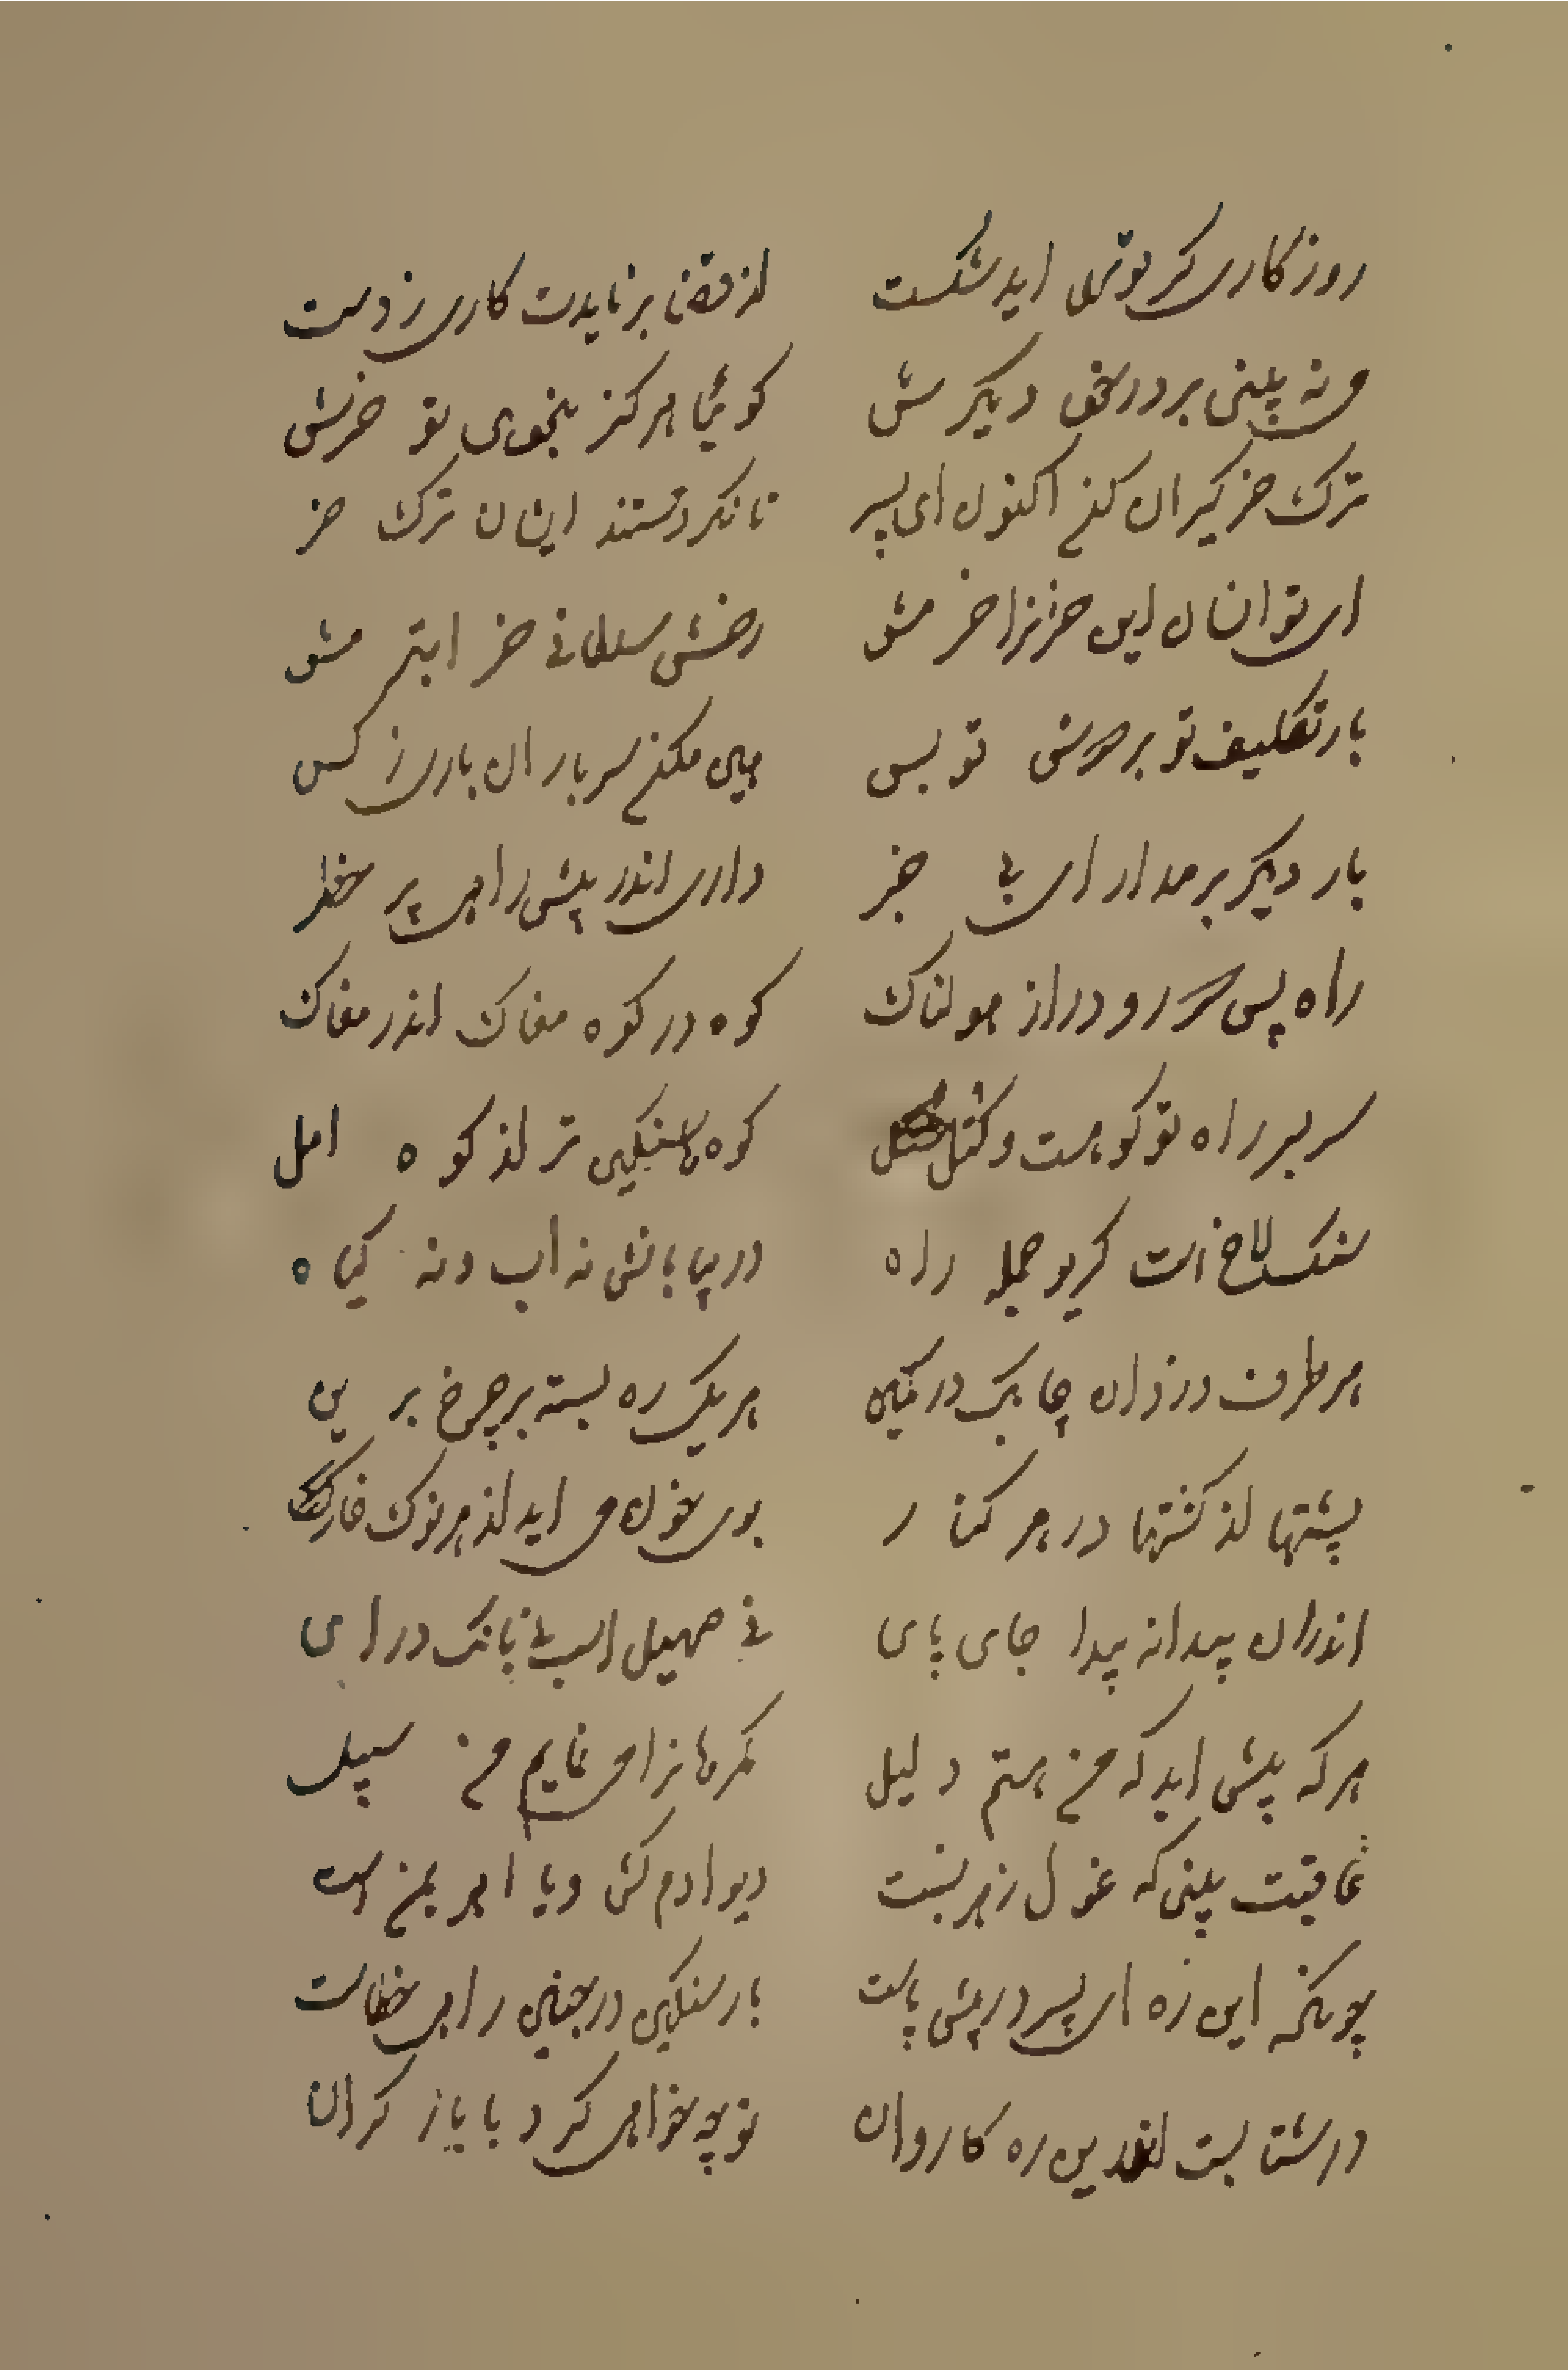 روزکاری کر بوتی اید شکست از قضا برنایدت کاری ز دست
می نه بینی بر در خود دیکر ش کوئیا هرکز نجوی تو خرش
ترک خر کیران کن اکنون ای پسر تا نکردستند اینان ترک خر
ای توانان این خرنرا خر مشو رخش سلطانی خر ابتر مشو
بار تکلیف تو بر دوش تو بس هین مکن سربار ان باری ز کس
بار دیکر برمدار ای بی خبر داری اندر پیش راهی پر خطر
راه پس رو دراز هولناک کوه در کوه مغاک اندر مغاک
سربسر راه تو کوهست و کتل کوه سنکین تر از کوه امل
سنکلاخ است کریو جمله راه در بیابانش نه اب و نه کیاه
هر طرف دزدان چابک در کمین هر یک ره بسته بر چرخ برین
پشتها از کشتها در هر کنار بوی خون می اید از هر نوک خار
اندران پیدا نه پیدا جای پای نی صهیل اسب نی بانک درای
هر که پیش اید که من هستم دلیل کمرهانرا می نمایم من سبیل
عاقبت بینی که غول رهزنست دیو ادم کش و یا اهریمن است
چونکه این ره ای پسر در پیش پاست بار سنکین در چنین راهی خطاست
در شتابست اندرین ره کاروان تو چه خواهی کرد با بار کران